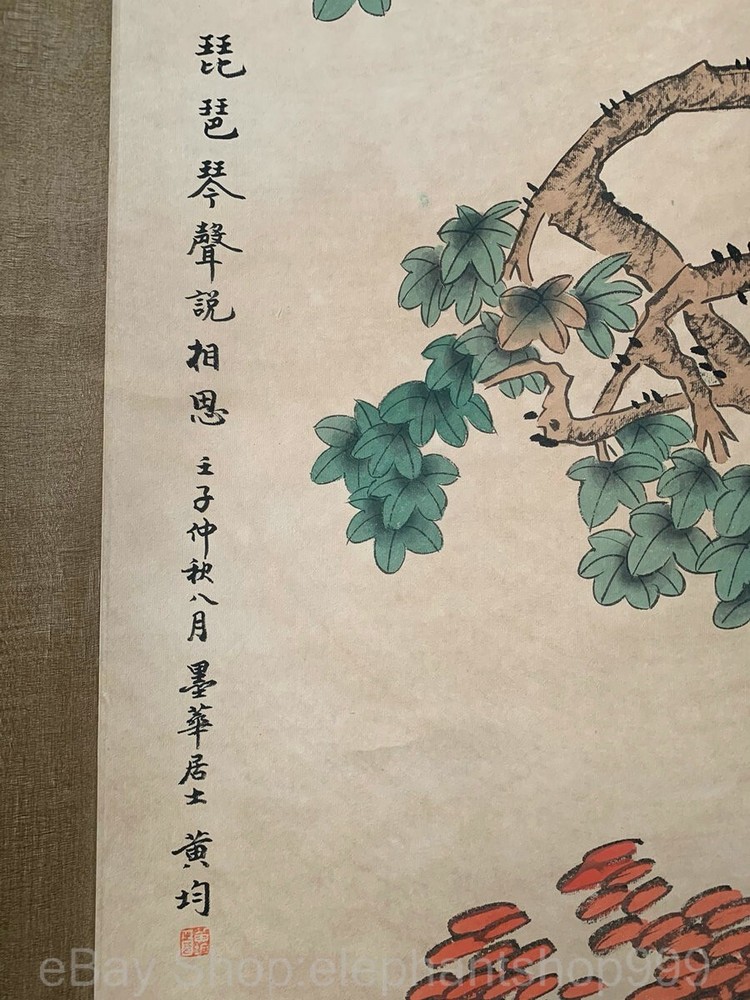 琵琶琴聲説相思 壬子仲秋八月 墨華居士 黃均
eBay shop:elephantshop999